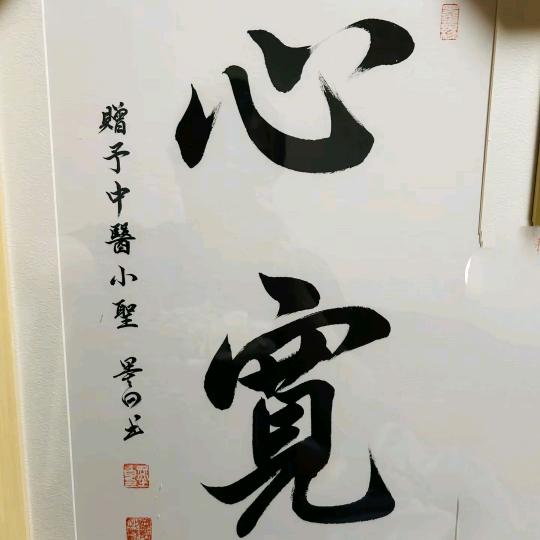 心寬
贈予中醫小聖